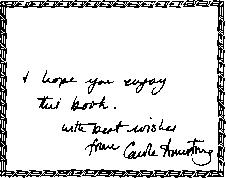 I hope you enjoy
this book.
with best wishes
from Carole Armstrong